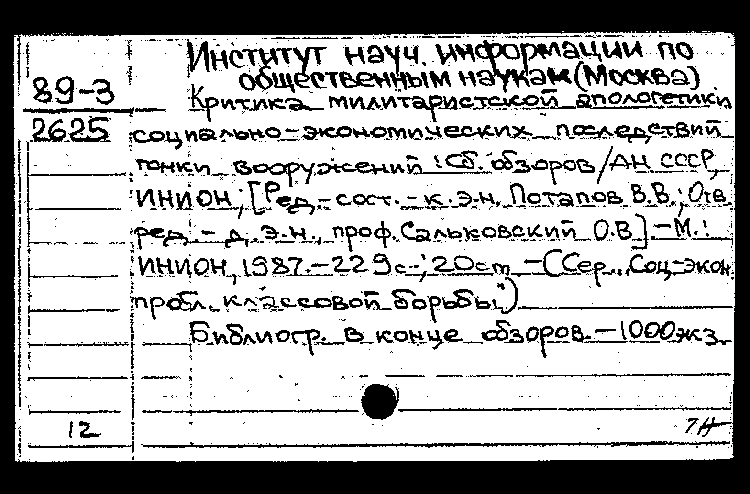 Институт науч. информации по
общественным наукам (Москва)
89-3
2625
Критика милитаристской апологетики
социально-экономических последствий
гонки вооружений : Сб. обзоров / АН СССР,
ИНИОН; [Ред.-сост. - к.э.н. Потапов В.В.; Отв.
ред. - д.э.н., проф. Сальковский О.В.] - М.:
ИНИОН, 1987. - 229 с.; 20 см - (Сер. „Соц.-экон.
пробл. классовой борьбы")
Библиогр. в конце обзоров. - 1000 экз.
12